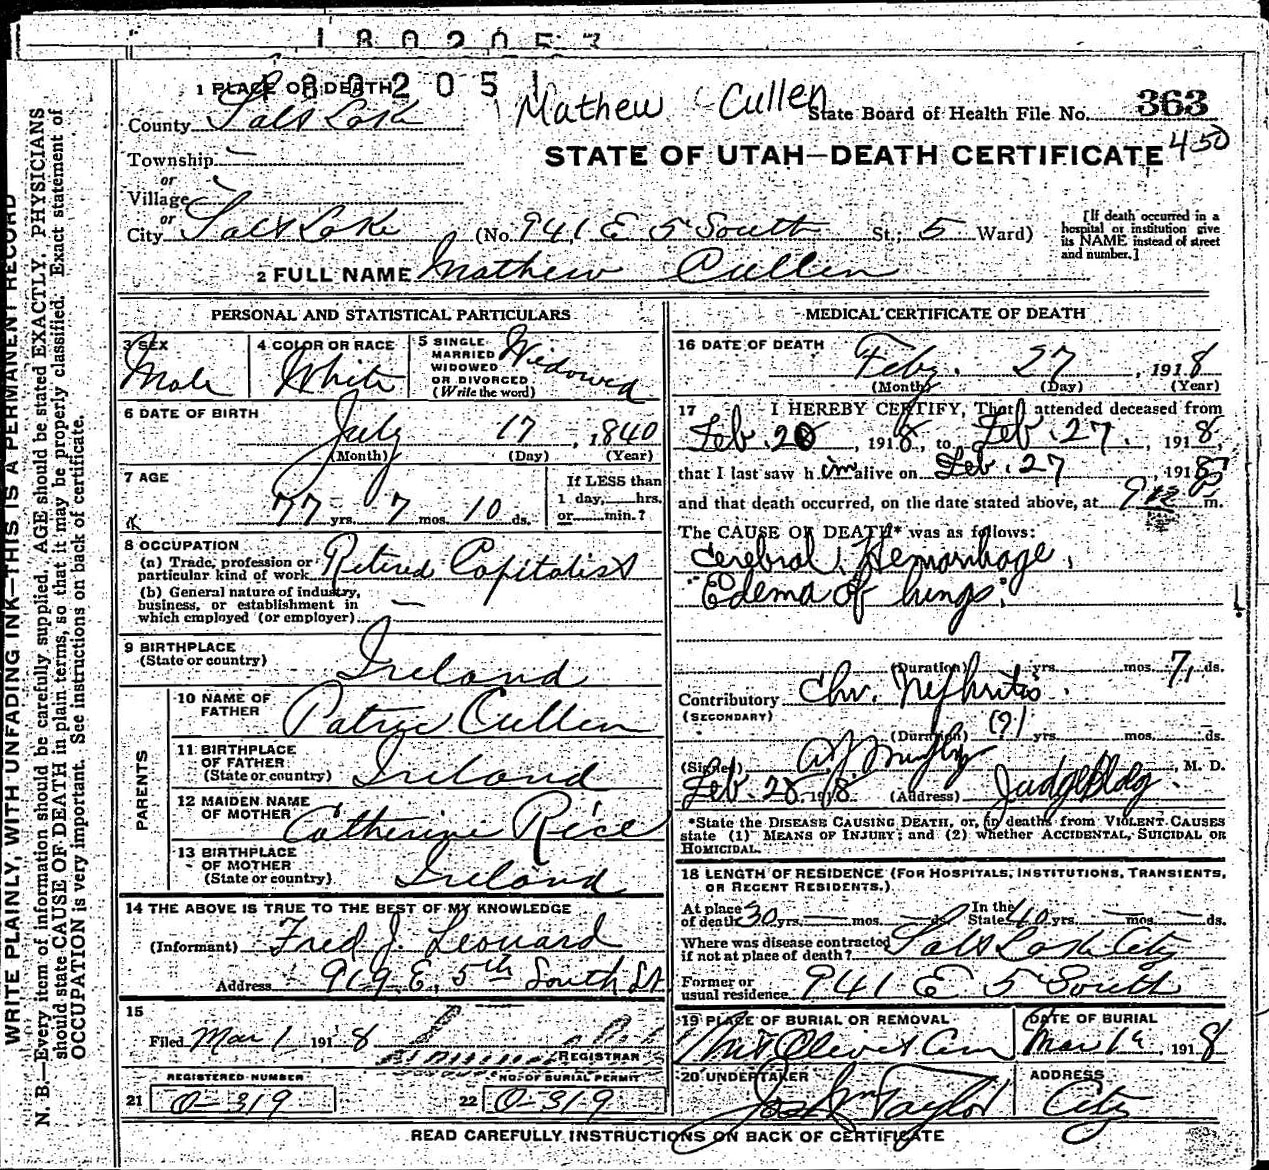 1802053
1802051
Mathew Cullen
1 PLACE OF DEATH
State Board of Health File No. 363
County Salt Lake
450
STATE OF UTAH—DEATH CERTIFICATE
Township —
or
Village
or
City Salt Lake (No. 941 E 5 South St.; 5 Ward)
[If death occurred in a hospital or institution give its NAME instead of street and number.]
2 FULL NAME Mathew Cullen
PERSONAL AND STATISTICAL PARTICULARS
3 SEX
Male
4 COLOR OR RACE
White
5 SINGLE
MARRIED
WIDOWED
OR DIVORCED
(Write the word)
Widowed
6 DATE OF BIRTH
July 17, 1840
(Month) (Day) (Year)
7 AGE
77 yrs. 7 mos. 10 ds.
If LESS than
1 day, hrs.
or min.?
8 OCCUPATION
(a) Trade, profession or
particular kind of work Retired Capitalist
(b) General nature of industry,
business, or establishment in
which employed (or employer) —
9 BIRTHPLACE
(State or country) Ireland
PARENTS
10 NAME OF
FATHER Patric Cullen
11 BIRTHPLACE
OF FATHER
(State or country) Ireland
12 MAIDEN NAME
OF MOTHER Catherine Rice
13 BIRTHPLACE
OF MOTHER
(State or country) Ireland
14 THE ABOVE IS TRUE TO THE BEST OF MY KNOWLEDGE
(Informant) Fred J. Leonard
Address 919 E. 5th South St.
15
Filed Mar 1 1918
REGISTRAR
REGISTERED NUMBER
21 0-319
NO. OF BURIAL PERMIT
22 0-319
MEDICAL CERTIFICATE OF DEATH
16 DATE OF DEATH
Feby. 27, 1918
(Month) (Day) (Year)
17 I HEREBY CERTIFY, That I attended deceased from
Feb. 20, 1918, to Feb. 27., 1918,
that I last saw him alive on Feb. 27 1918
and that death occurred, on the date stated above, at 9 m.
The CAUSE OF DEATH* was as follows:
Cerebral Hemorrhage,
Edema of lungs.
(Duration) yrs. mos. 7 ds.
Contributory Chr. Nephritis.
(SECONDARY)
(Duration) (?) yrs. mos. ds.
(Signed) , M. D.
Feb. 28, 1918 (Address) Judge Bldg.
*State the DISEASE CAUSING DEATH, or, in deaths from VIOLENT CAUSES
state (1) MEANS OF INJURY; and (2) whether ACCIDENTAL, SUICIDAL OR
HOMICIDAL.
18 LENGTH OF RESIDENCE (FOR HOSPITALS, INSTITUTIONS, TRANSIENTS,
OR RECENT RESIDENTS.)
At place of death 30 yrs. — mos. — ds. In the State 40 yrs. — mos. — ds.
Where was disease contracted
if not at place of death? Salt Lake City
Former or
usual residence 941 E 5 South
19 PLACE OF BURIAL OR REMOVAL
Mt Olivet Cem
DATE OF BURIAL
Mar 1st, 1918
20 UNDERTAKER
Jos Wm Taylor
ADDRESS
City
READ CAREFULLY INSTRUCTIONS ON BACK OF CERTIFICATE
WRITE PLAINLY, WITH UNFADING INK—THIS IS A PERMANENT RECORD
N. B.—Every item of information should be carefully supplied. AGE should be stated EXACTLY. PHYSICIANS
should state CAUSE OF DEATH in plain terms, so that it may be properly classified. Exact statement of
OCCUPATION is very important. See instructions on back of certificate.